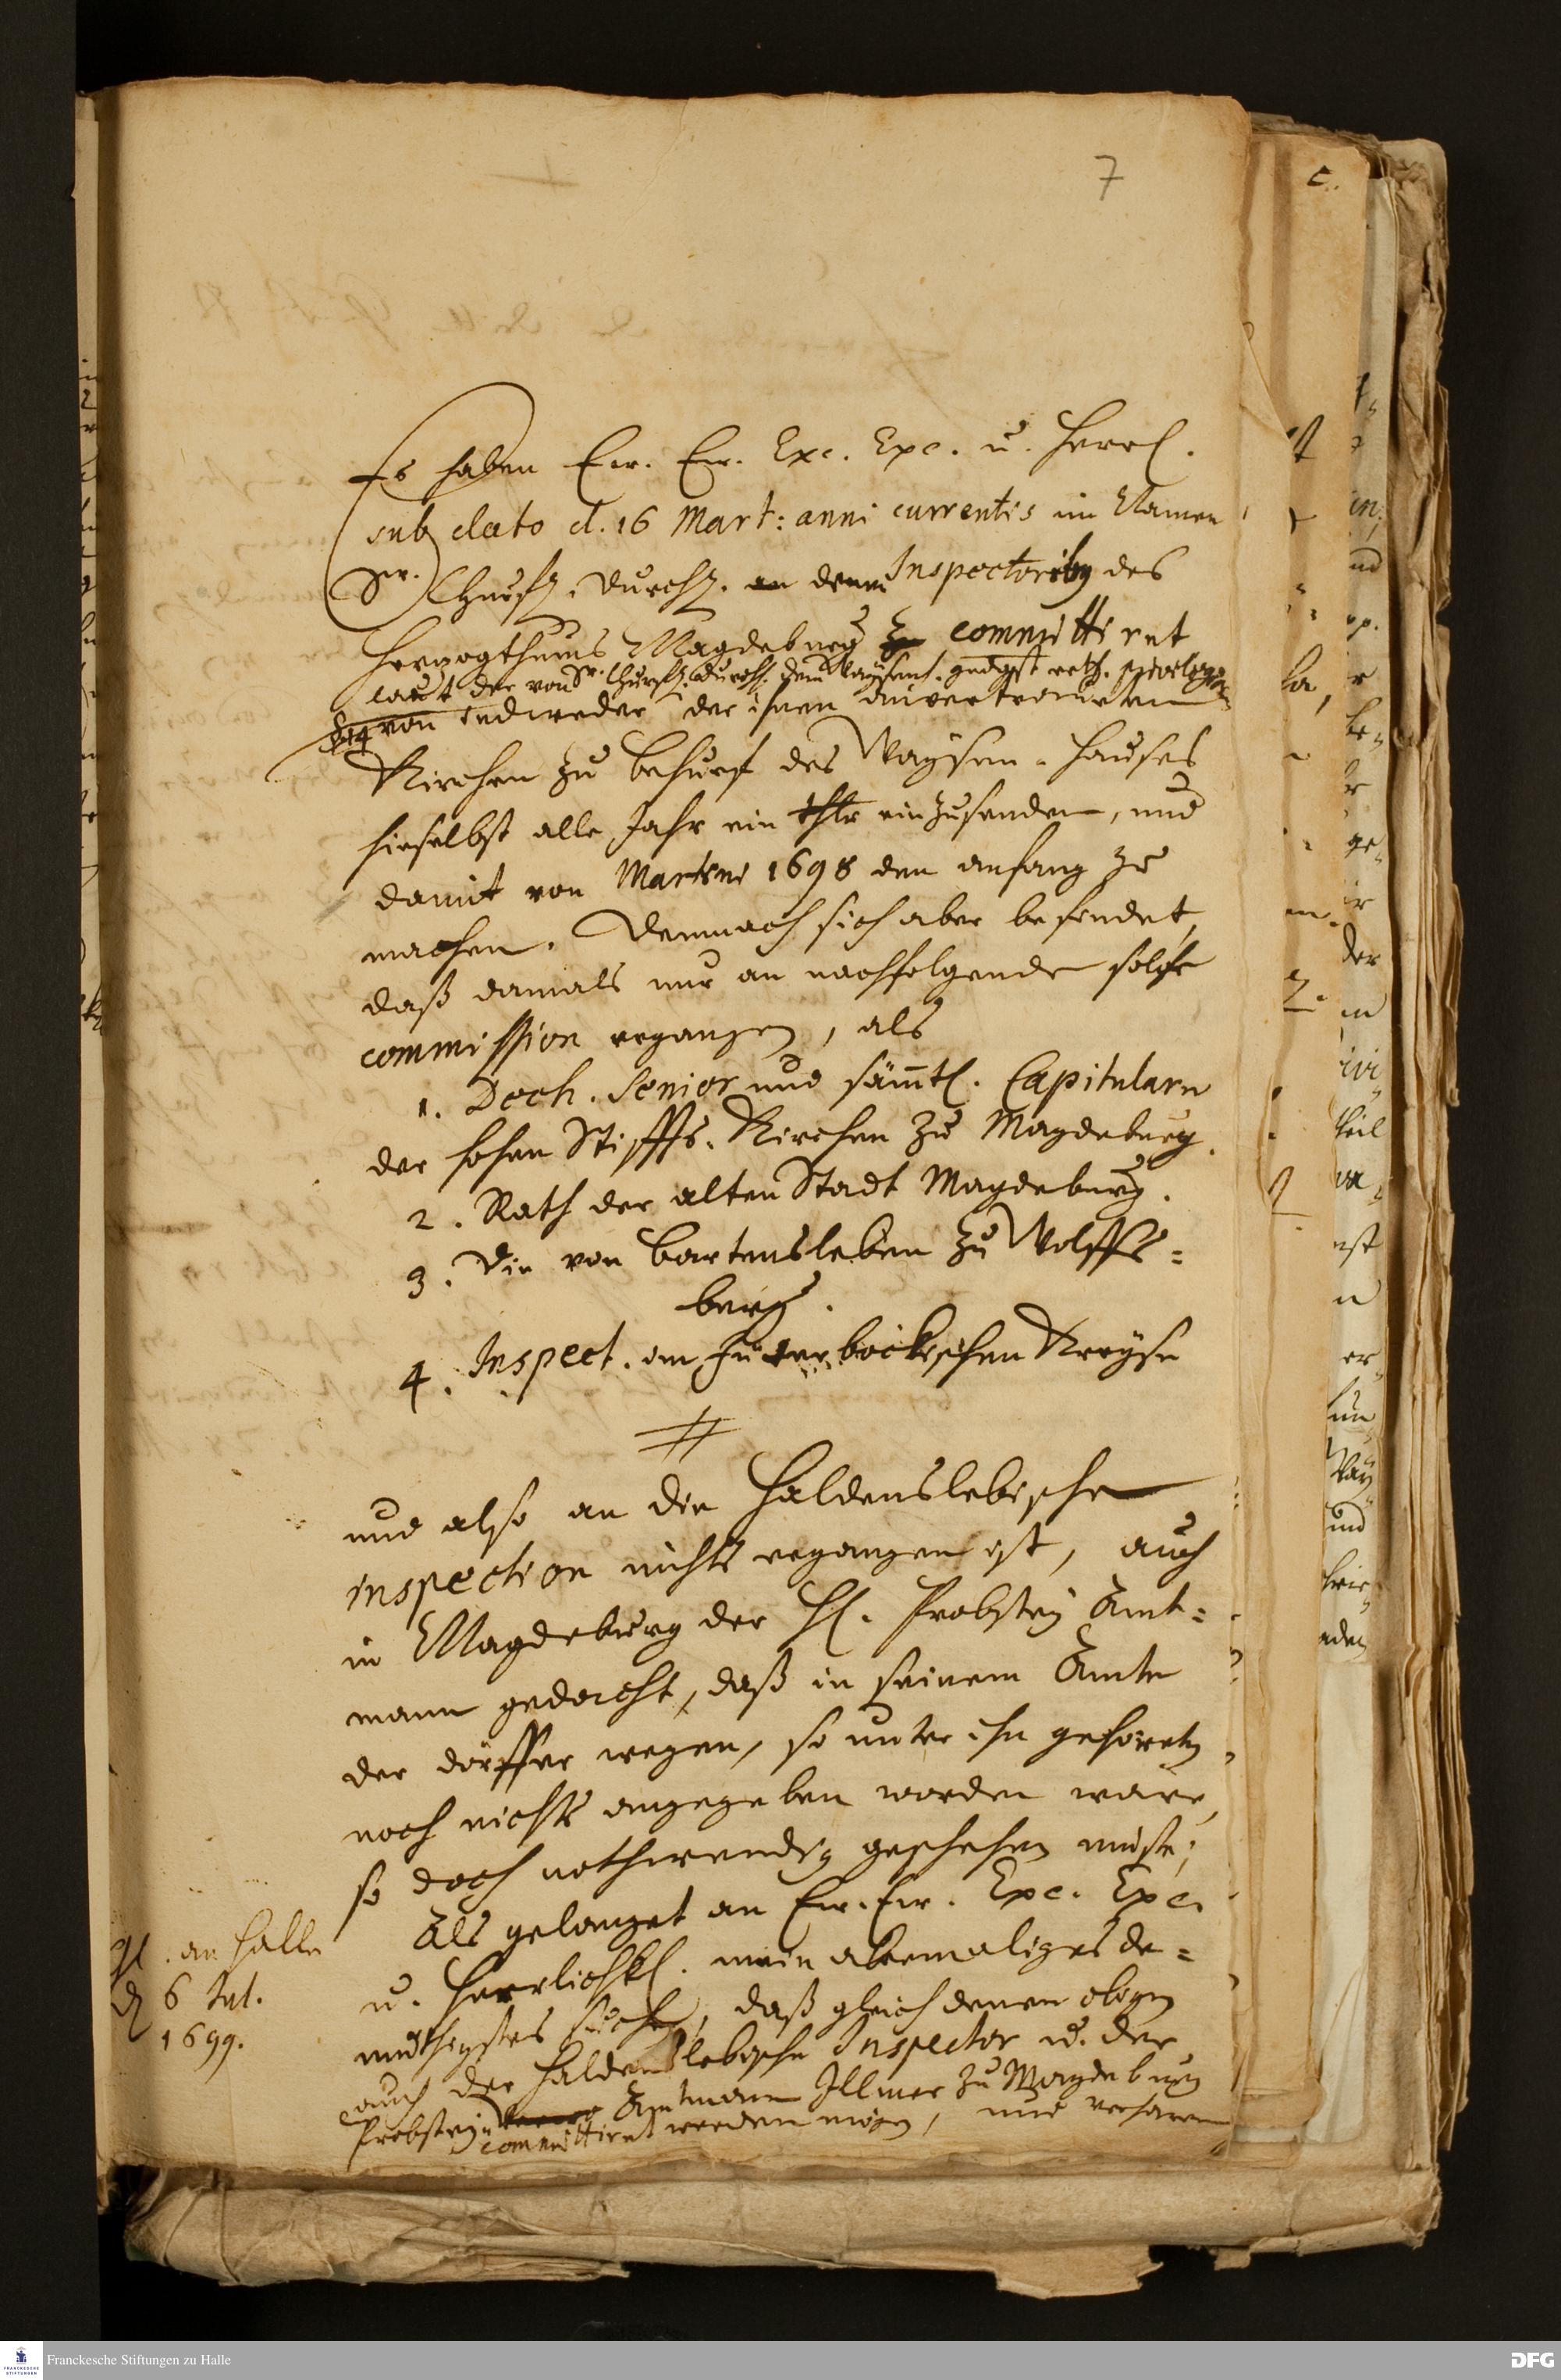 7
Es haben Ew. Ew. Exc. Exc. u. Herrl.
sub dato d. 16 Mart: anni currentis im Namen
Sr. Churfl. Durchl. denen Inspectoribus des
Herzogthums Magdeburg committiret
laut der von Sr. Churfl. Durchl. dem Waysenh. gnädgst erth.
von iedweder der ihnen anvertrauten
Kirchen zu behuef des Waysen-Hauses
hieselbst alle Jahr ein thlr einzusenden, und
damit von Martini 1698 den anfang zu
machen. Demnach sich aber befindet,
daß damals nur an nachfolgende solche
commission ergangen, als
1. Dech. Senior und sämtl. Capitularn
der hohen Stiffts-Kirchen zu Magdeburg.
2. Rath der alten Stadt Magdeburg.
3. Die von Bartensleben zu Wolffs=
berg.
4. Inspect. im Jüterbockischen Kreyse
und also an die Haldenslebische
inspection nichts ergangen ist, auch
in Magdeburg der H. Probstey Amt=
mann gedacht, daß in seinem Amte
der dörffer wegen, so unter ihn gehören
noch nichts angegeben worden wäre,
so doch nothwendig geschehen müste;
Als gelanget an Ew. Ew. Exc. Exc.
u. Herrlichkl. mein abermaliges de=
müthigstes suchen, daß gleich denen obigen
auch der Haldenslebische Inspector u. der
Probstey Amtmann Illmer zu Magdeburg
committiret werden mögen, und
an Halle
d 6 Jul.
1699.
Franckesche Stiftungen zu Halle
DFG